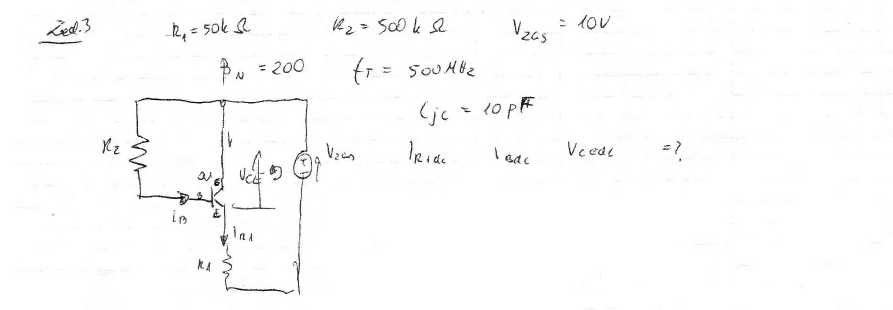 Zad.3 R₁ = 50k Ω R₂ = 500 k Ω Vzas = 10V
βN = 200 fT = 500 MHz
Cjc = 10 pF
R2 VCE Vzas IR1dc IBdc VCEdc = ?
B
E
iB IR1
R1